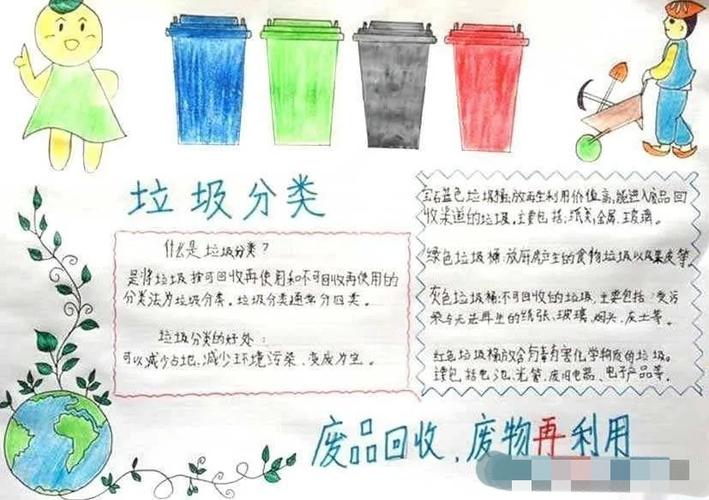 垃圾分类
什么是垃圾分类？
是将垃圾按可回收再使用和不可回收再使用的
分类法为垃圾分类。垃圾分类通常分四类。
垃圾分类的好处：
可以减少占地、减少环境污染、变废为宝。
宝石蓝色垃圾桶：放再生利用价值高，能进入废品回
收渠道的垃圾，主要包括：纸类、金属、玻璃。
绿色垃圾桶：放厨房产生的食物垃圾以及果皮等。
灰色垃圾桶：不可回收的垃圾，主要包括：受污
染与无法再生的纸张、玻璃、烟头、灰土等。
红色垃圾桶放含有毒有害化学物质的垃圾。
主要包括电池、光管、废旧电器、电子产品等。
废品回收、废物再利用